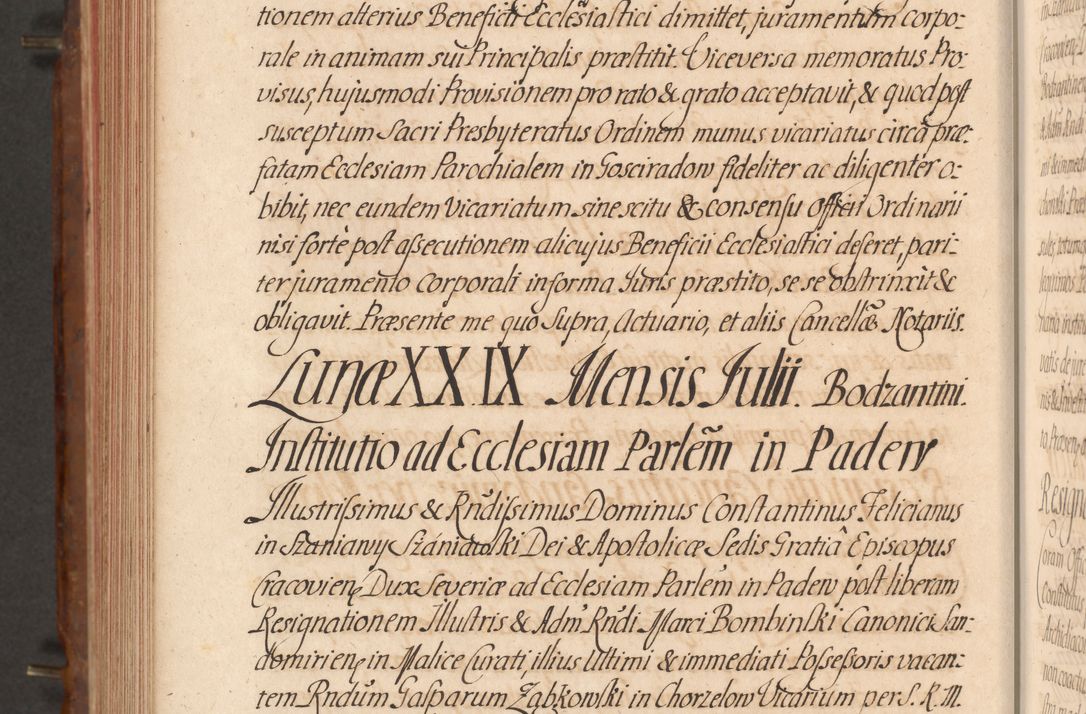 tionem alterius Beneficii Ecclesiastici dimittet, juramentum corpo:
rale in animam sui Principalis præstitit. Viceversa memoratus Pro:
visus, hujusmodi Provisionem pro rato & grato acceptavit, & quod post
susceptum Sacri Presbyteratus Ordinem munus vicariatus circa præ:
fatam Ecclesiam Parochialem in Gosciradow fideliter ac diligenter o:
bibit, nec eundem Vicariatum sine scitu & consensu Offcii Ordinarii
nisi fortè post assecutionem alicujus Beneficii Ecclesiastici deseret, pari:
ter juramento Corporali in forma Juris præstito, se se obstrinxit &
obligavit. Præsente me quo Supra, Actuario, et aliis Cancellæ Notariis.
Lunæ XXIX Mensis Julii. Bodzantini.
Institutio ad Ecclesiam Parlem̃ in Padew
Illustrissimus & Rñdissimus Dominus Constantinus Felicianus
in Szaniawy Szániawski Dei & Apostolicæ Sedis Gratiâ Episcopus
Cracovieñ Dux Severiæ ad Ecclesiam Parlem̃ in Padew post liberam
Resignationem Illustris & Adm̃ Rñdi Marci Bombinski Canonici San:
domirieñ in Malice Curati, illius Ultimi & immediati Possessoris vacan:
tem Rndum̃ Gasparum Ząbkowski in Chorzelow Vicarium per S. R. M.